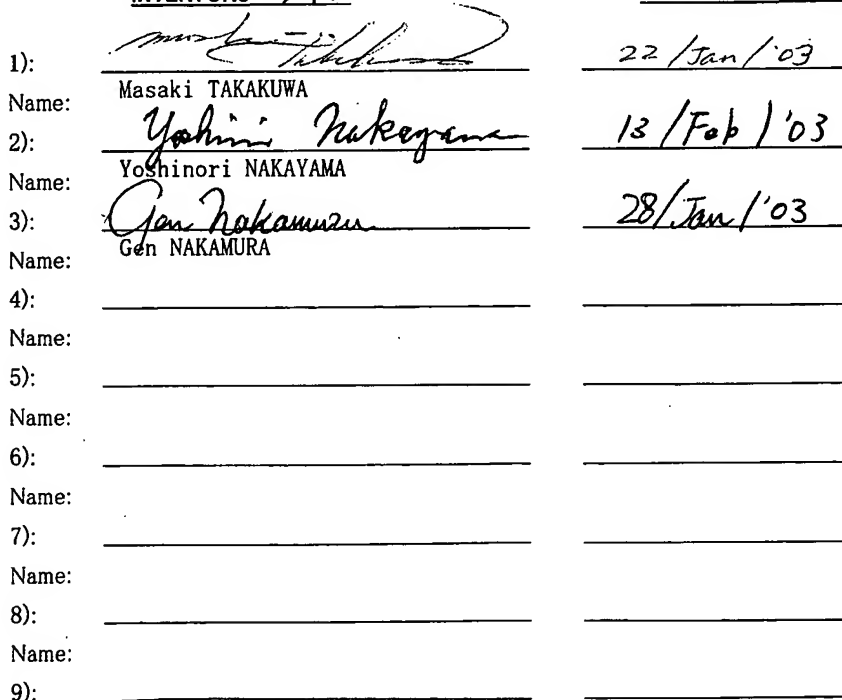 INVENTORS
1): Masaki Takakuwa 22/Jan/'03
Name: Masaki TAKAKUWA
2): Yoshinori Nakayama 13/Feb/'03
Name: Yoshinori NAKAYAMA
3): Gen Nakamura 28/Jan/'03
Name: Gen NAKAMURA
4):
Name:
5):
Name:
6):
Name:
7):
Name:
8):
Name:
9):